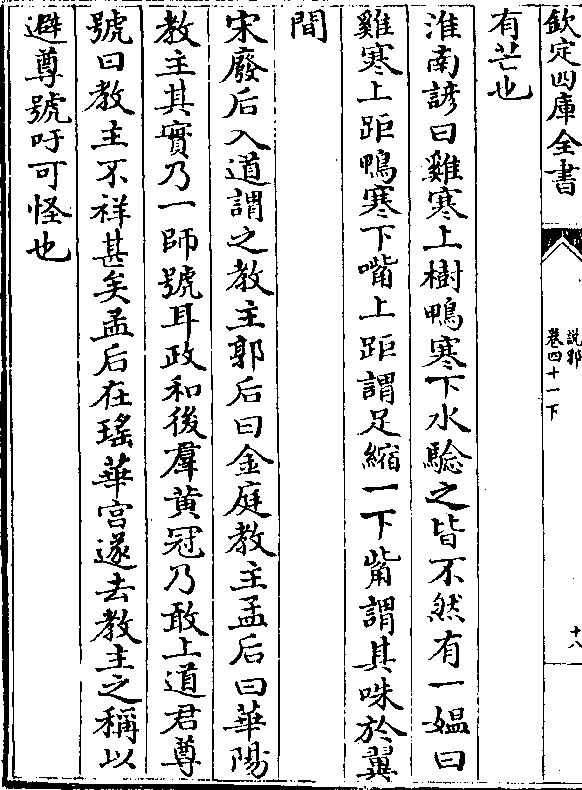 欽定四庫全書
說郛
卷四十一下
十八
有芒也
淮南諺曰雞寒上樹鴨寒下水驗之皆不然有一媪曰
雞寒上距鴨寒下嘴上距謂足縮一下觜謂其咮於翼
間
宋廢后入道謂之教主郭后曰金庭教主孟后曰華陽
教主其實乃一師號耳政和後羣黄冠乃敢上道君尊
號曰教主不祥甚矣孟后在瑤華宫遂去教主之稱以
避尊號吁可怪也